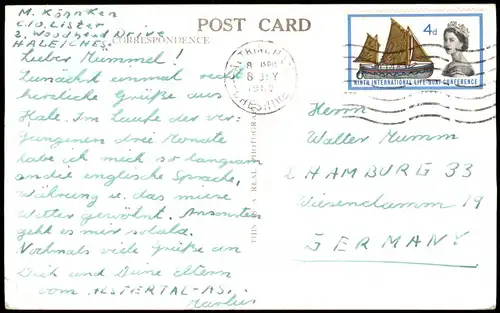 M. Köhnken
C.I.O. Lister
2, Woodhead Drive
HALE/CHES.
POST CARD
CORRESPONDENCE
Lieber Mummel!
Zunächst einmal recht
herzliche Grüße aus
Hale. Im Laufe der ver-
gangenen drei Monate
habe ich mich so langsam
an die englische Sprache,
Währung u. das miese
Wetter gewöhnt. Ansonsten
geht es mir solala.
Nochmals viele Grüße an
Dich und Deine Eltern
vom ALSTERTAL-AS.
Markus
THIS IS A REAL PHOTOGRAPH
8 JLY
CHESHIRE
4d
NINTH INTERNATIONAL LIFE-BOAT CONFERENCE
Herrn
Walter Mumm
2 HAMBURG 33
Wiesendamm 19
GERMANY